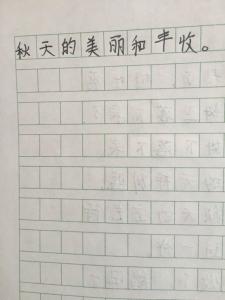 秋天的美丽和丰收。